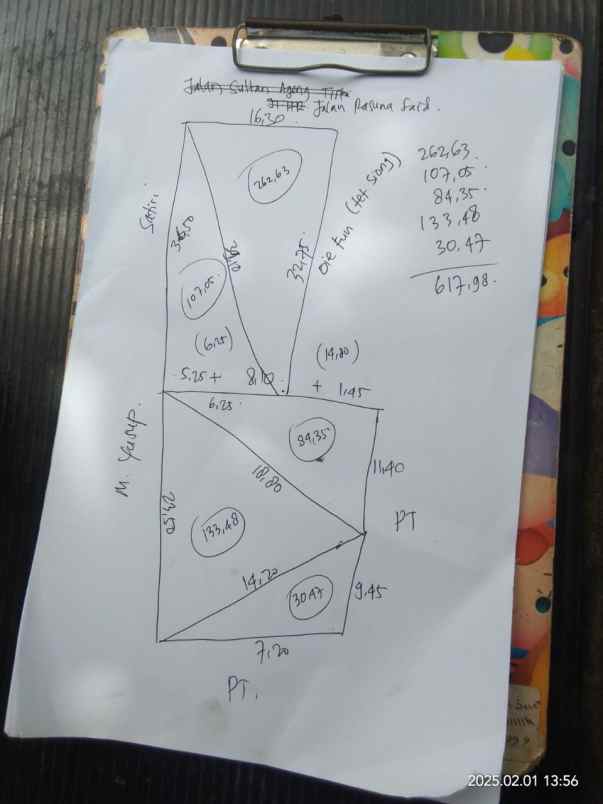 Jalan Sultan Ageng Tirta
Jalan Rasuna Said.
16,30
262,63.
107,05
84,35.
133,48
30.47
617,98.
262,63
Oie tun (tet siong)
Satiri
32,75
107,05
(6,25)
(14,80)
5,25 + 8,10
+ 1,45
6,25
84,35
M. Yusup.
18,80
11,40
PT
133,48
14,20
30,47
9,45
7,20
PT.
2025.02.01 13:56